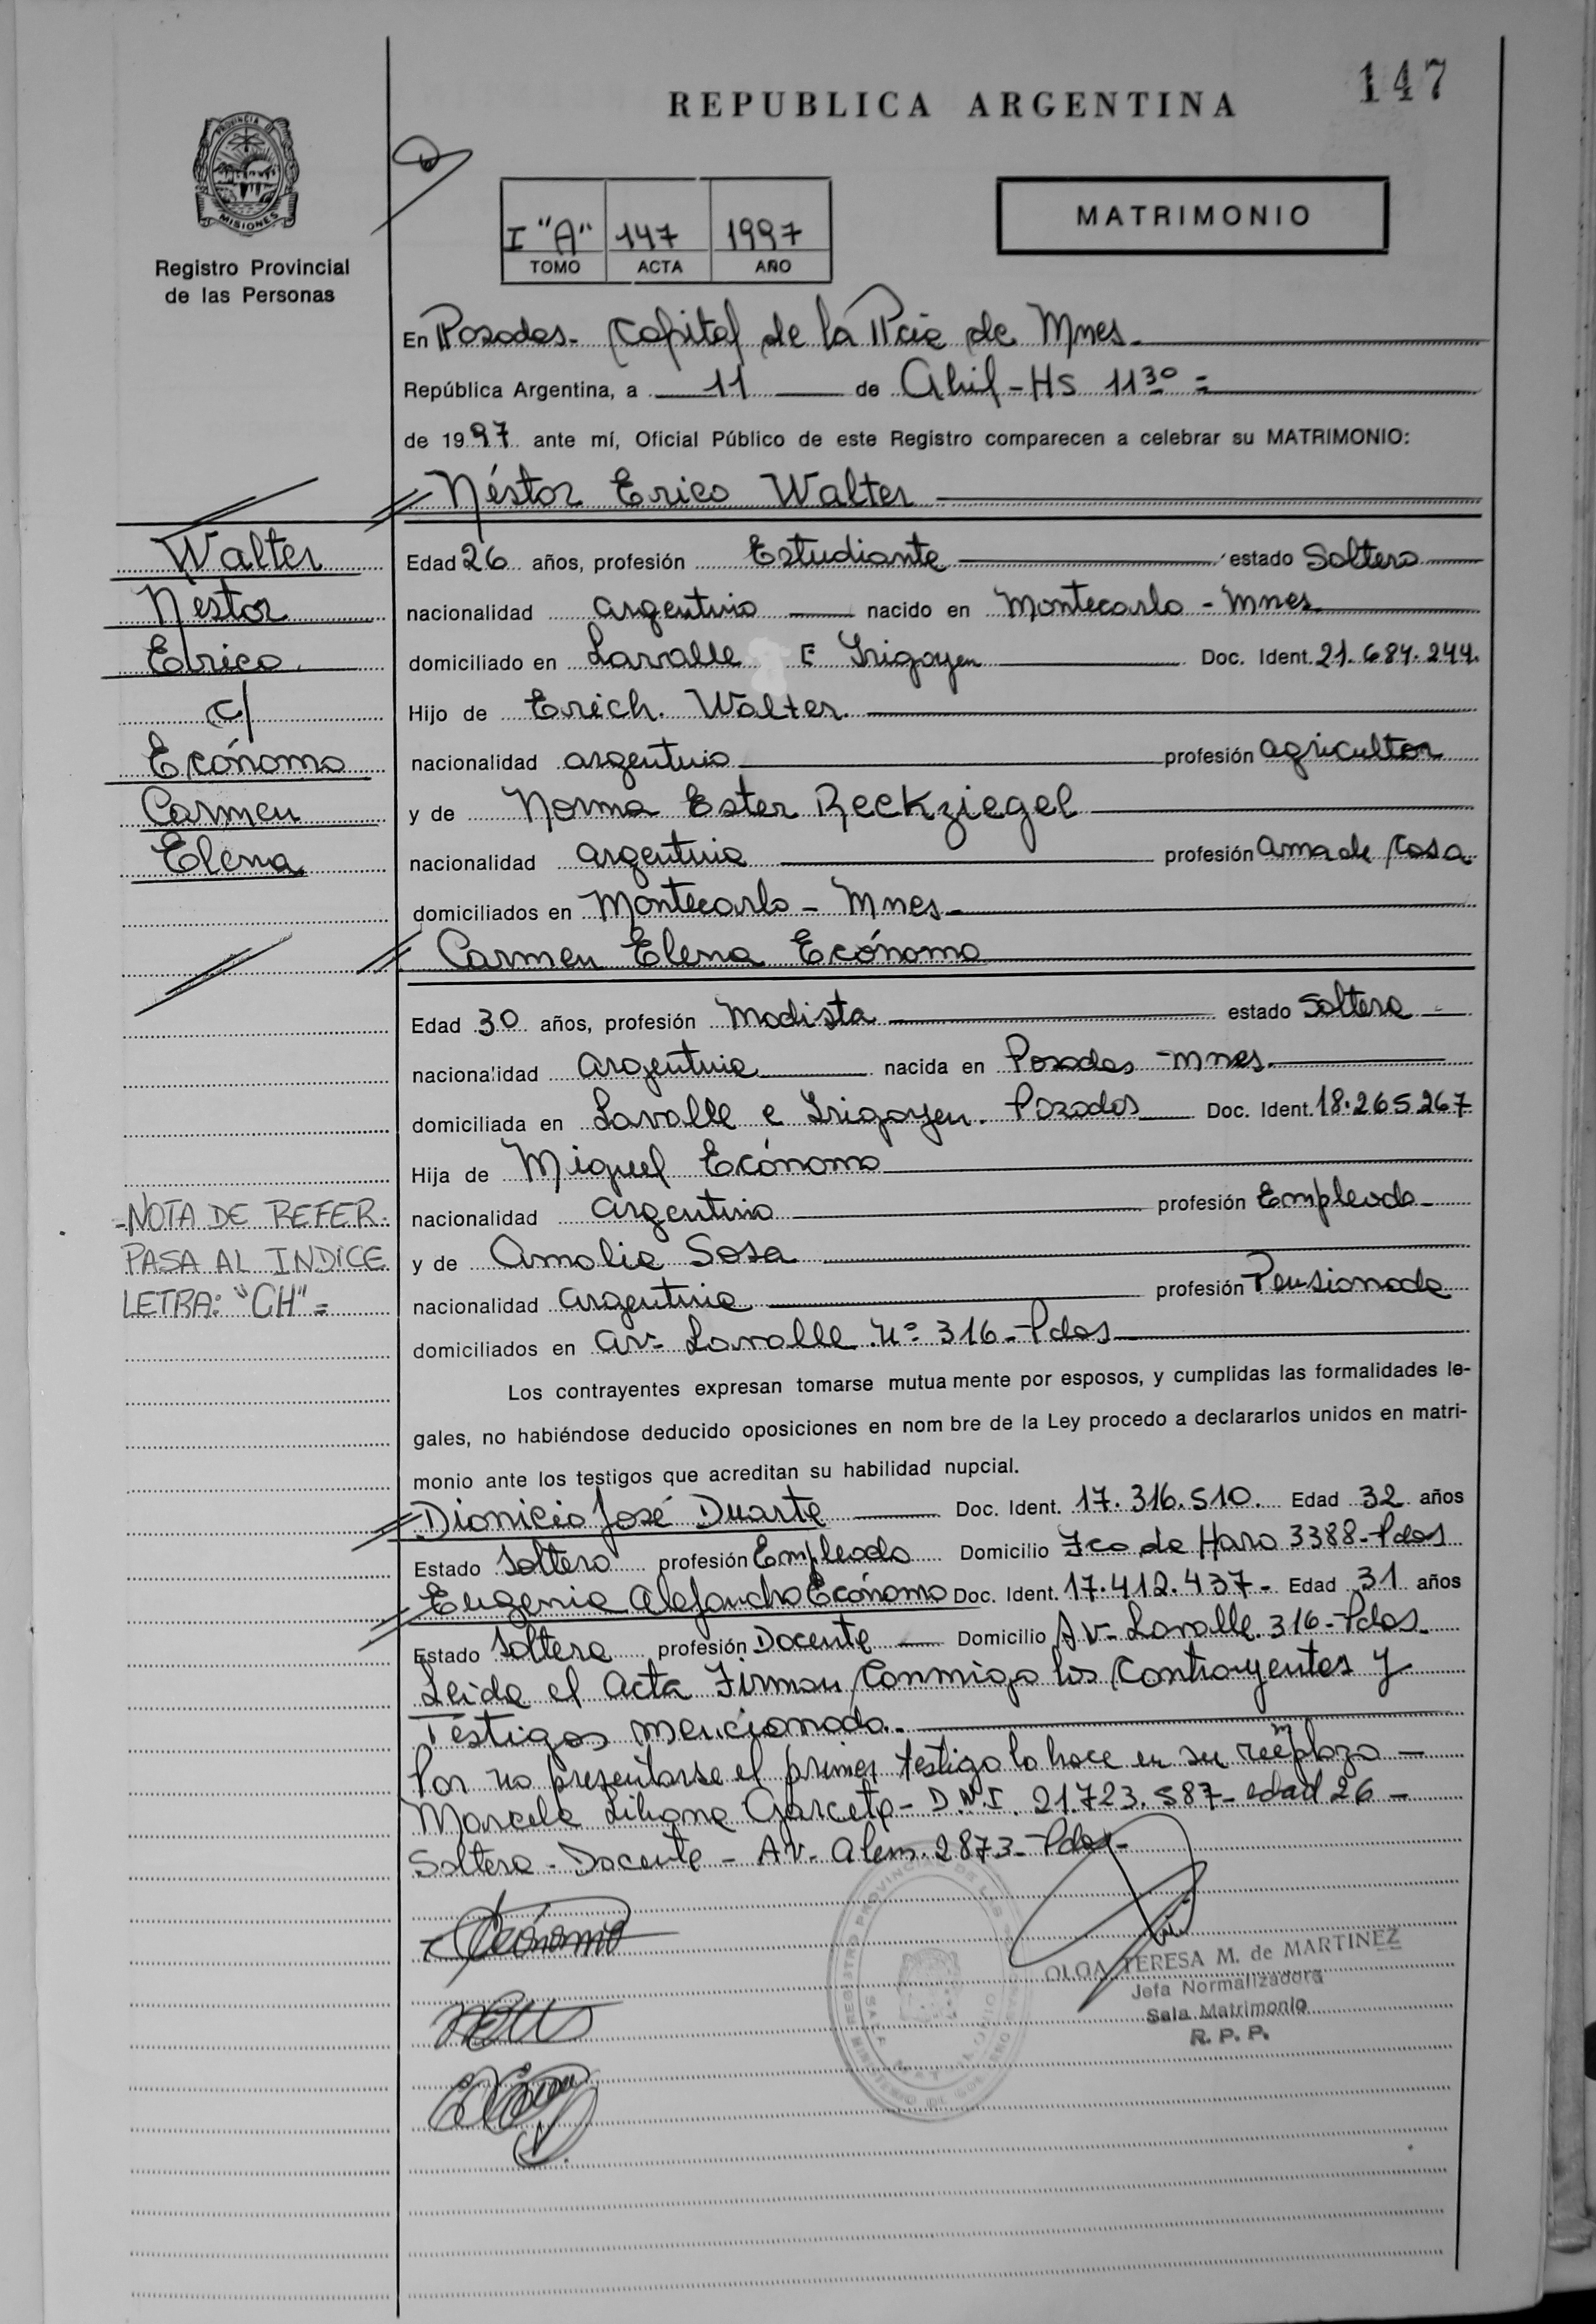 147
REPUBLICA ARGENTINA
PROVINCIA DE
MISIONES
Registro Provincial
de las Personas
I "A" 147 1997
TOMO ACTA AÑO
MATRIMONIO
En Posadas - Capital de la Pcia de Mnes.
República Argentina, a 11 de Abril - Hs 11 30 =
de 1997 ante mí, Oficial Público de este Registro comparecen a celebrar su MATRIMONIO:
Néstor Erico Walter
Walter
Edad 26 años, profesión Estudiante estado Soltero
Nestor
nacionalidad argentino nacido en Montecarlo - Mnes
Erico
domiciliado en Lavalle E Irigoyen Doc. Ident. 21.684.244.
c/
Hijo de Erich. Walter.
Ecónomo
nacionalidad argentino profesión agricultor
Carmen
y de Norma Ester Reckziegel
Elena
nacionalidad argentina profesión ama de casa
domiciliados en Montecarlo - Mnes -
Carmen Elena Ecónomo
Edad 30 años, profesión Modista estado Soltera
nacionalidad argentina nacida en Posadas - Mnes.
domiciliada en Lavalle e Irigoyen. Posadas Doc. Ident. 18.265.267
Hija de Miguel Ecónomo
- NOTA DE REFER.
nacionalidad argentino profesión Empleado
PASA AL INDICE
y de Amalia Sosa
LETRA: "CH" =
nacionalidad argentina profesión Pensionada
domiciliados en Av- Lavalle Nº 316 - Pdas
Los contrayentes expresan tomarse mutua mente por esposos, y cumplidas las formalidades le-
gales, no habiéndose deducido oposiciones en nom bre de la Ley procedo a declararlos unidos en matri-
monio ante los testigos que acreditan su habilidad nupcial.
Dionicio José Duarte Doc. Ident. 17.316.510. Edad 32 años
Estado Soltero profesión Empleado Domicilio Fco de Haro 3388 - Pdas
Eugenia Alejandra Ecónomo Doc. Ident. 17.412.437 - Edad 31 años
Estado Soltera profesión Docente Domicilio Av- Lavalle 316 - Pdas.
Leida el acta Firman Conmigo los Contrayentes y
Testigos mencionado.
Por no presentarse el primer testigo lo hace en su reemplazo -
Marcela Liliana Garceta - D.N.I. 21.723.587 - edad 26 -
Soltera - Docente - Av- Alem 2873 - Pdas -
Ecónomo
OLGA TERESA M. de MARTINEZ
Jefa Normalizadora
Sala Matrimonio
R. P. P.